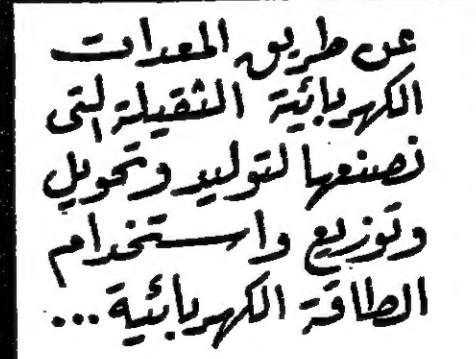 عن طريق المعدات
الكهربائية الثقيلة التى
نصنعها لتوليد وتحويل
وتوزيع واستخدام
الطاقة الكهربائية...